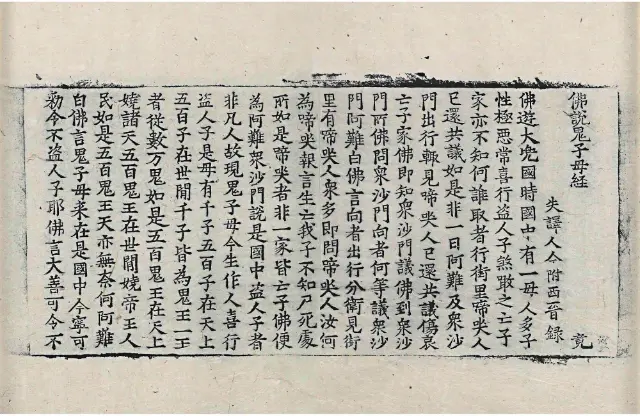 佛說鬼子母経
失譯人今附西晉錄 竟
佛遊大兜國時國中有一母人多子
性極惡常喜行盜人子煞噉之亡子
家亦不知何誰取者行街里啼哭人
已還共議如是非一日阿難及衆沙
門出行輙見啼哭人已還共議傷哀
亡子家佛即知衆沙門議佛到衆沙
門所佛問衆沙門向者何等議衆沙
門阿難白佛言向者出行分衛見街
里有啼哭人衆多即問啼哭人汝何
為啼哭報言生亡我子不知尸死處
所如是啼哭者非一家皆亡子佛便
為阿難衆沙門說是國中盜人子者
非凡人故現鬼子母今生作人喜行
盜人子是母有千子五百子在天上
五百子在世間千子皆為鬼王一王
者從數万鬼如是五百鬼王在天上
嬈諸天五百鬼王在世間嬈帝王人
民如是五百鬼王天亦無奈何阿難
白佛言鬼子母來在是國中今寧可
勑令不盜人子耶佛言大善可令不